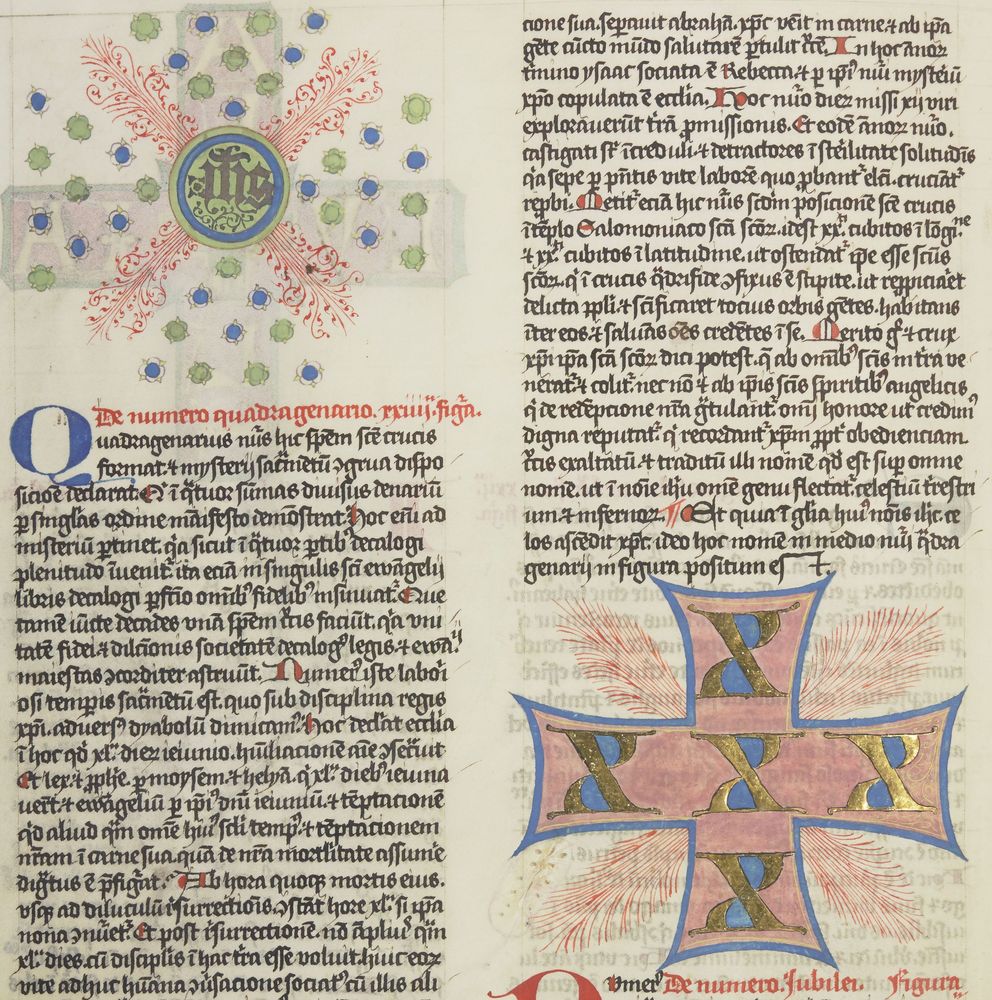 ihs
De numero quadragenario. xxiiij. figa.
Quadragenarius nus hic spem sce crucis
format. & mysterij sacmetu ogrua dispo
sicoe declarat. Et i qtuor sumas diuisus denariu
p singlas ordine manifesto demostrat. Hoc eni ad
misteriu ptinet. qa sicut i qtuor ptib decalogi
plenitudo iuenit. ita ecia in singulis sci ewagelij
libris decalogi pfctio omib fidelib insinuat. Que
tame iucte decades vna spem cis faciut. qa vni
tate fidei & dilcionis societate decalog legis & ewa.
maiestas ocorditer astruut. Numer iste labori
osi tempis sacmetu est. quo sub disciplina regis
xpi. aduers dyabolu dimicam. Hoc declat ecclia
i hoc qd xl. diez ieiunio. huiliacione aie osecut
Et lex & pphe. p moysem. & helya. q xl. dieb ieiuna
uert. & ewageliu p ipi dni ieiuniu. & teptacione
qd aliud qm ome hui scli temp. & teptacionem
nram i carne sua. qua de nra mortlitate assume
digtus e pfigat. Ab hora quoq mortis eius.
vsq ad diluculu rsurrectiois. ostat hore xl. si ipa
nona onuet. Et post rsurrectione. no aplius qm
xl. dies. cu disciplis i hac tra esse voluit. huic eor
vite adhuc huana ouersacione sociat. cu illis ali
cione sua. sepauit abraha. xpc veit in carne. & ab ipa
gete cucto mudo salutare ptulit fce. In hoc anor
tmino ysaac sociata e Rebecca. & p ipi nui mysteriu
xpo copulata e ecclia. Hoc nuo diez missi xij viri
explorauerut tra pmissionis. Et eode anor nuo.
castigati st increduli & detractores i sterilitate solitudis
qa sepe p pntis vite labore quo pbant ela. cruciat
repbi. Metit ecia hic nus scdm posicione sce crucis
i teplo Salomoniaco sca scor. idest xx. cubitos i logi.ne
& xx. cubitos i latitudine. ut ostendat ipe esse scus
scor. q i crucis qdrifide ofixus e stipite. ut reppiciaet
delicta ppli. & scificaret tocius orbis getes. habitans
iter eos. & saluas oes credetes i se. Merito g & crux
xpi ipa sca scor dici potest. q ab omib scis in tra ve
nerat. & colit. nec no & ab ipis scis spiritib angelicis
q de redepcione nra gtulant. omi honore ut credim
digna reputat. q recordant xpm ppt obedienciam
cis exaltatu & traditu illi nome qd est sup omne
nome. ut i noie ihu ome genu flectat. celestiu trestri
um & infernor. Et quia i glia hui nois ihc. ce
los ascedit xpc. ideo hoc nome in medio nui qdra
genarij in figura positum est.
X
X X X
X
Numer De numero. Jubilei. Figura